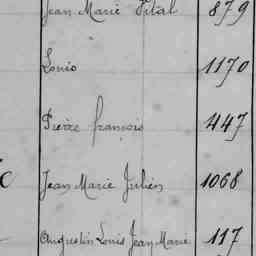 Jean Marie Vital 879
Louis 1170
Pierre françois 447
Jean Marie Julien 1068
Augustin Louis Jean Marie 117